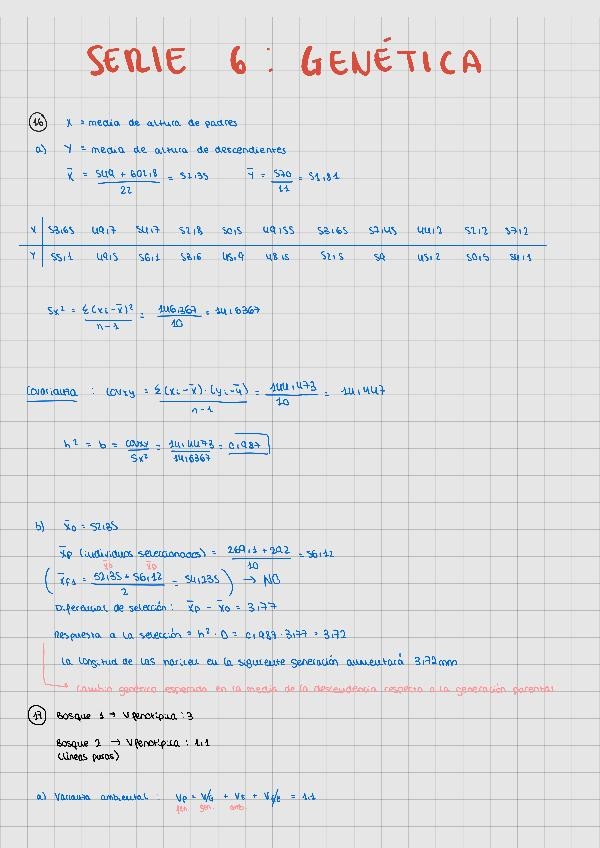 SERIE 6: GENÉTICA
16 X = media de altura de padres
a) Y = media de altura de descendientes
X̄ = 549 + 602,8 / 22 = 52,35 Ȳ = 570 / 11 = 51,81
X 53,65 49,7 54,7 52,8 50,5 49,55 53,65 57,45 44,2 52,2 57,2
Y 55,1 49,5 56,1 53,6 45,9 48,5 52,5 59 45,2 50,5 54,1
Sx² = Σ(xi-x̄)² / n-1 = 146,367 / 10 = 14,6367
Covarianza : covxy = Σ(xi-x̄)·(yi-ȳ) / n-1 = 144,473 / 10 = 14,447
h² = b = covxy / Sx² = 14,4473 / 14,6367 = 0,987
b) x̄o = 52,35
x̄p (individuos seleccionados) = 269,1 + 292 / 10 = 56,12
x̄o x̄p
( x̄F1 = 52,35 + 56,12 / 2 = 54,235 ) → NO
Diferencial de selección: x̄p - x̄o = 3,77
Respuesta a la selección = h² · D = 0,987 · 3,77 = 3,72
La longitud de las narices en la siguiente generación aumentará 3,72mm
→ cambio genético esperado en la media de la descendencia respecto a la generación parental
17 Bosque 1 → Vfenotípica : 3
Bosque 2 → Vfenotípica : 1,1
(líneas puras)
a) Varianza ambiental : Vp = VG + VE + VGE = 1,1
fen. gen. amb.